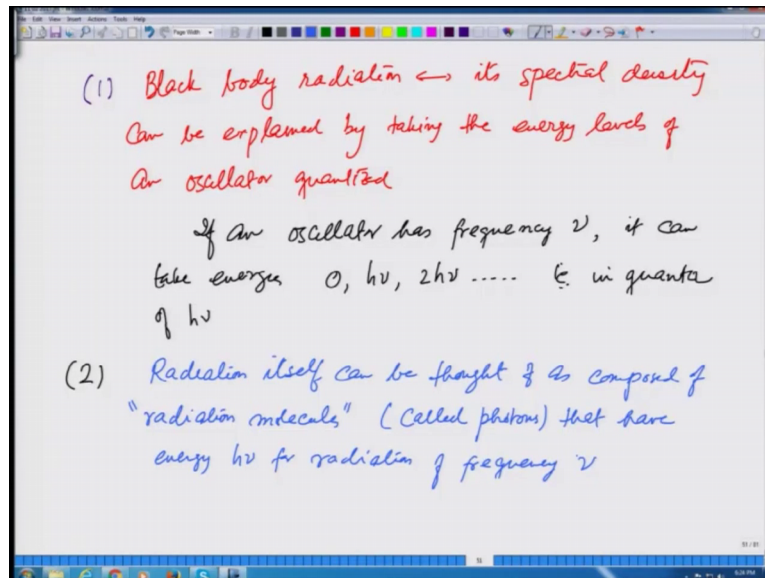 File Edit View Insert Actions Tools Help
Page Width
(1) Black body radiation ↔ its spectral density
Can be explained by taking the energy levels of
An oscillator quantized
If an oscillator has frequency ν, it can
take energies 0, hν, 2hν ..... ie. in quanta
of hν
(2) Radiation itself can be thought of as composed of
"radiation molecules" (called photons) that have
energy hν for radiation of frequency ν
51 / 51
51
6:26 PM